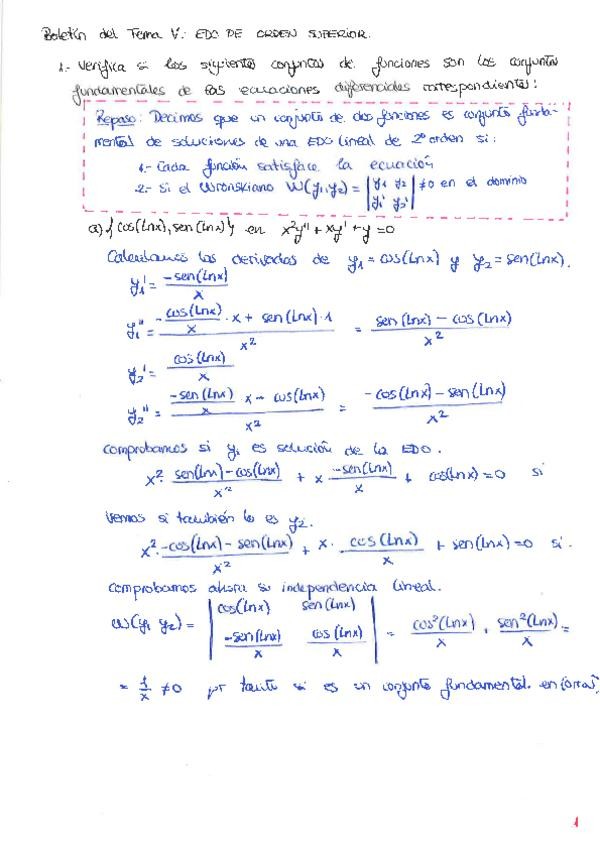 Boletín del Tema V: EDO DE ORDEN SUPERIOR.
1.- Verifica si los siguientes conjuntos de funciones son los conjuntos
fundamentales de las ecuaciones diferenciales correspondientes:
Repaso: Decimos que un conjunto de dos funciones es conjunto funda-
mental de soluciones de una EDO lineal de 2º orden si:
1.- Cada función satisface la ecuación
2.- Si el Wronskiano W(y₁,y₂) = |y₁ y₂; y₁' y₂'| ≠0 en el dominio
a) {cos(Lnx), sen(Lnx)} en x²y'' + xy' + y = 0
Calculamos las derivadas de y₁ = cos(Lnx) y y₂ = sen(Lnx).
y₁' = -sen(Lnx)/x
y₁'' = (-cos(Lnx)/x · x + sen(Lnx)·1)/x² = (sen(Lnx) - cos(Lnx))/x²
y₂' = cos(Lnx)/x
y₂'' = (-sen(Lnx)/x x - cos(Lnx))/x² = (-cos(Lnx) - sen(Lnx))/x²
comprobamos si y₁ es solución de la EDO.
x² · (sen(Lnx) - cos(Lnx))/x² + x · -sen(Lnx)/x + cos(Lnx) = 0 si
Vemos si también lo es y₂.
x² · (-cos(Lnx) - sen(Lnx))/x² + x · cos(Lnx)/x + sen(Lnx) = 0 si.
comprobamos ahora su independencia lineal.
W(y₁ y₂) = |cos(Lnx) sen(Lnx); -sen(Lnx)/x cos(Lnx)/x| = cos²(Lnx)/x + sen²(Lnx)/x =
= 1/x ≠0 por tanto si es un conjunto fundamental en
1